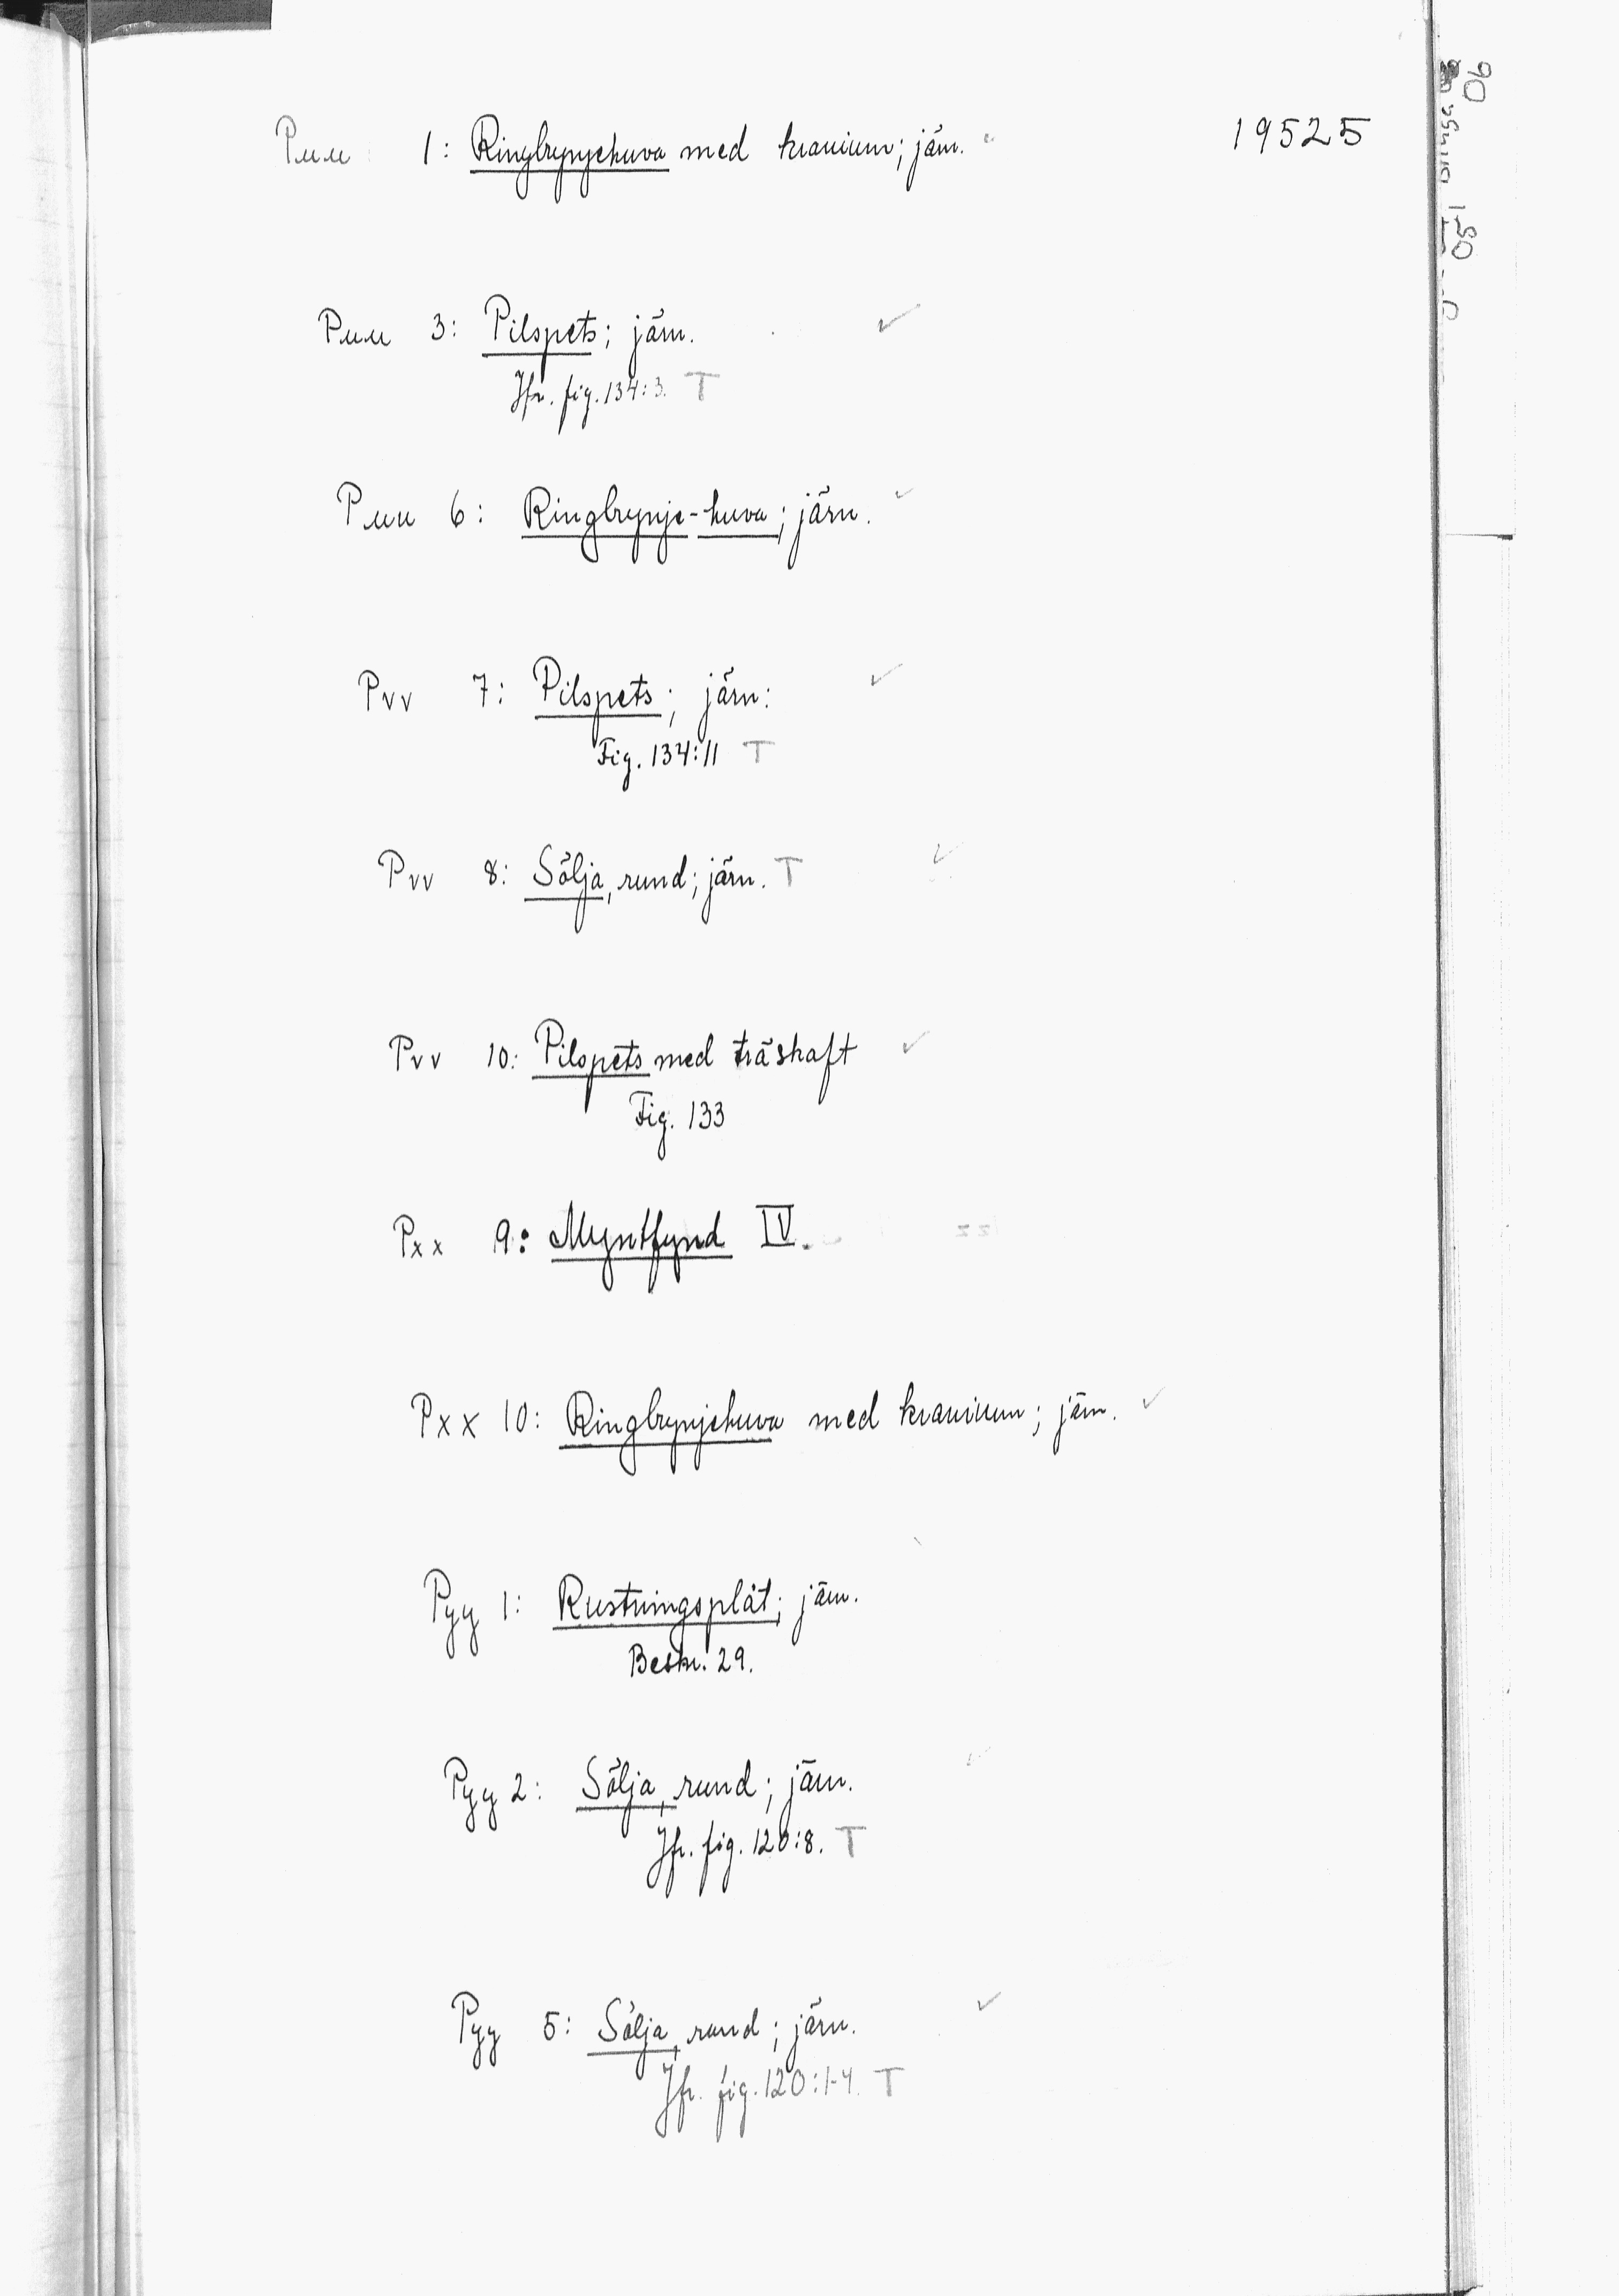 19525
Puu 1: Ringbrynjehuva med kranium; järn.
Puu 3: Pilspets; järn. ✓
Jfr. fig. 134:3. T
Puu 6: Ringbrynje-huva; järn. ✓
Pvv 7: Pilspets; järn: ✓
Fig. 134:11 T
Pvv 8: Sölja, rund; järn. T ✓
Pvv 10: Pilspets med träskaft ✓
Fig. 133
Pxx 9: Myntfynd IV.
Pxx 10: Ringbrynjehuva med kranium; järn. ✓
Pyy 1: Rustningsplåt; järn.
Beskr. 29.
Pyy 2: Sölja, rund; järn. ✓
Jfr. fig. 120:8. T
Pyy 5: Sölja, rund; järn. ✓
Jfr. fig. 120:1-4. T